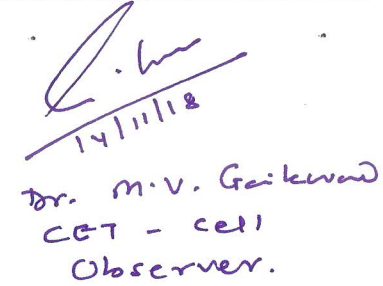 14/11/18
Dr. M.V. Gaikwad
CET - Cell
Observer.